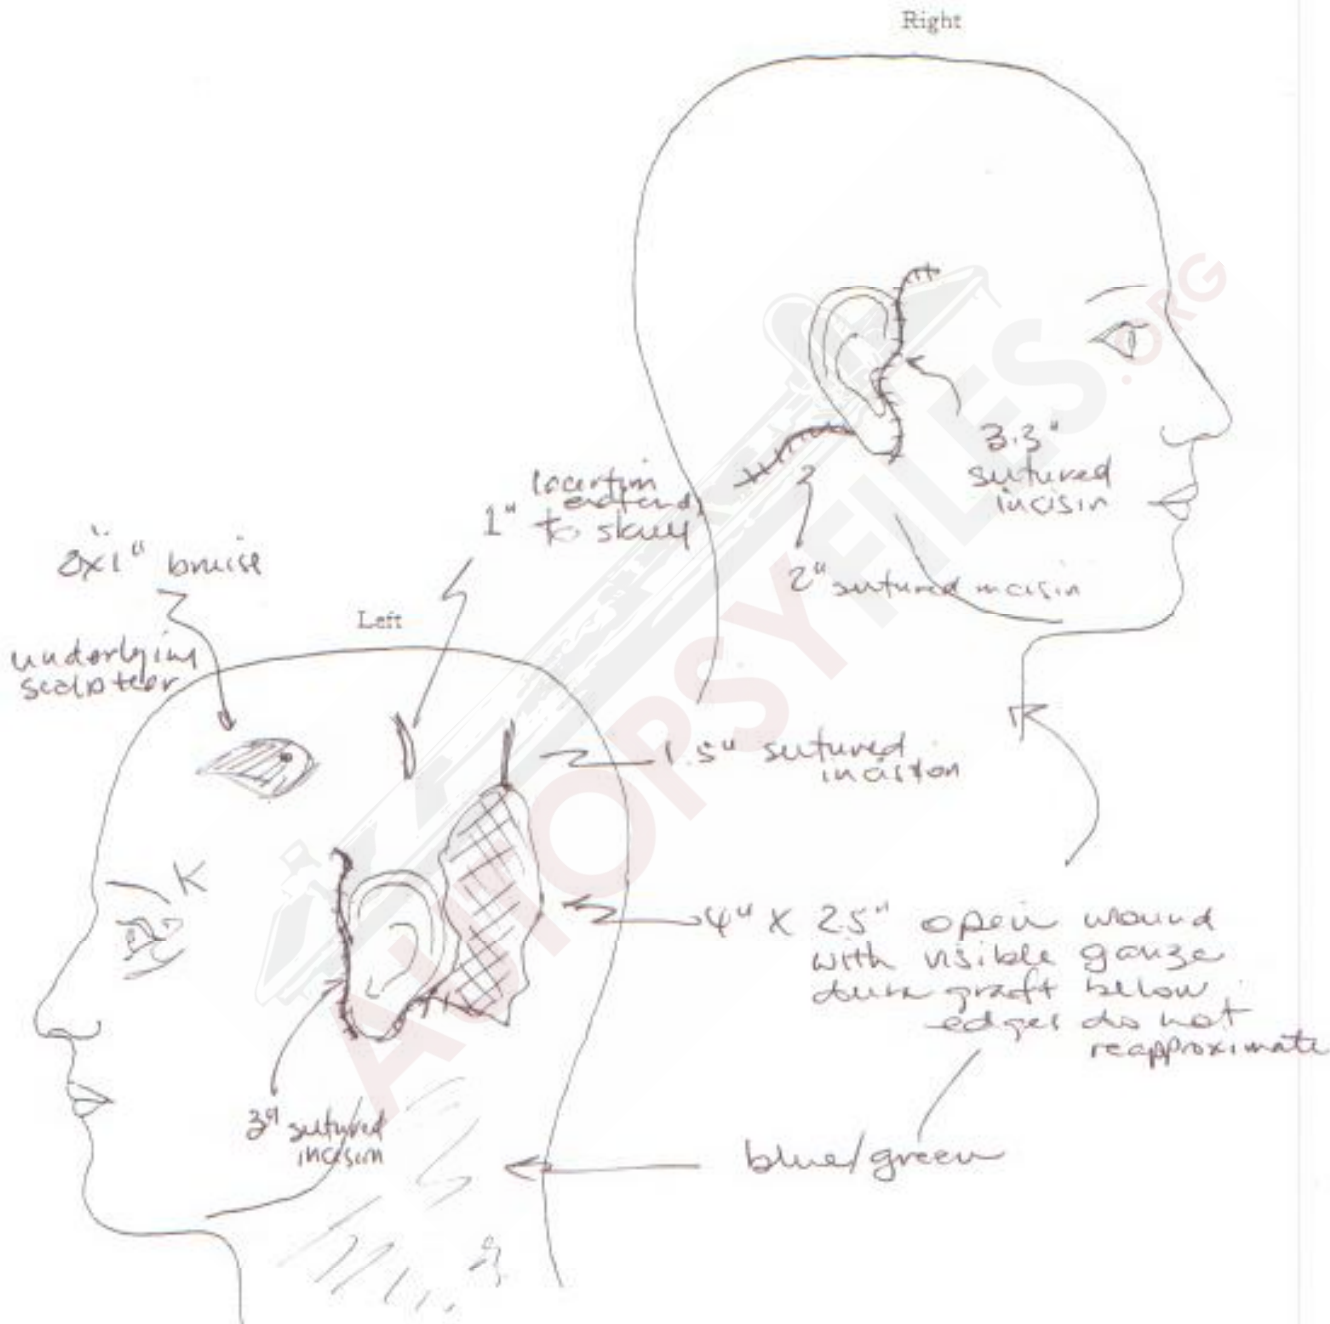 Right
3.3"
sutured
incisin
2" sutured incisin
1" to skull
2x1" bruise
underlying
scalp tear
Left
1.5" sutured
incision
4" x 2.5" open wound
with visible gauze
dura graft below
edges do not
reapproximate
3" sutured
incisin
blue/green
K
AUTOPSYFILES.ORG